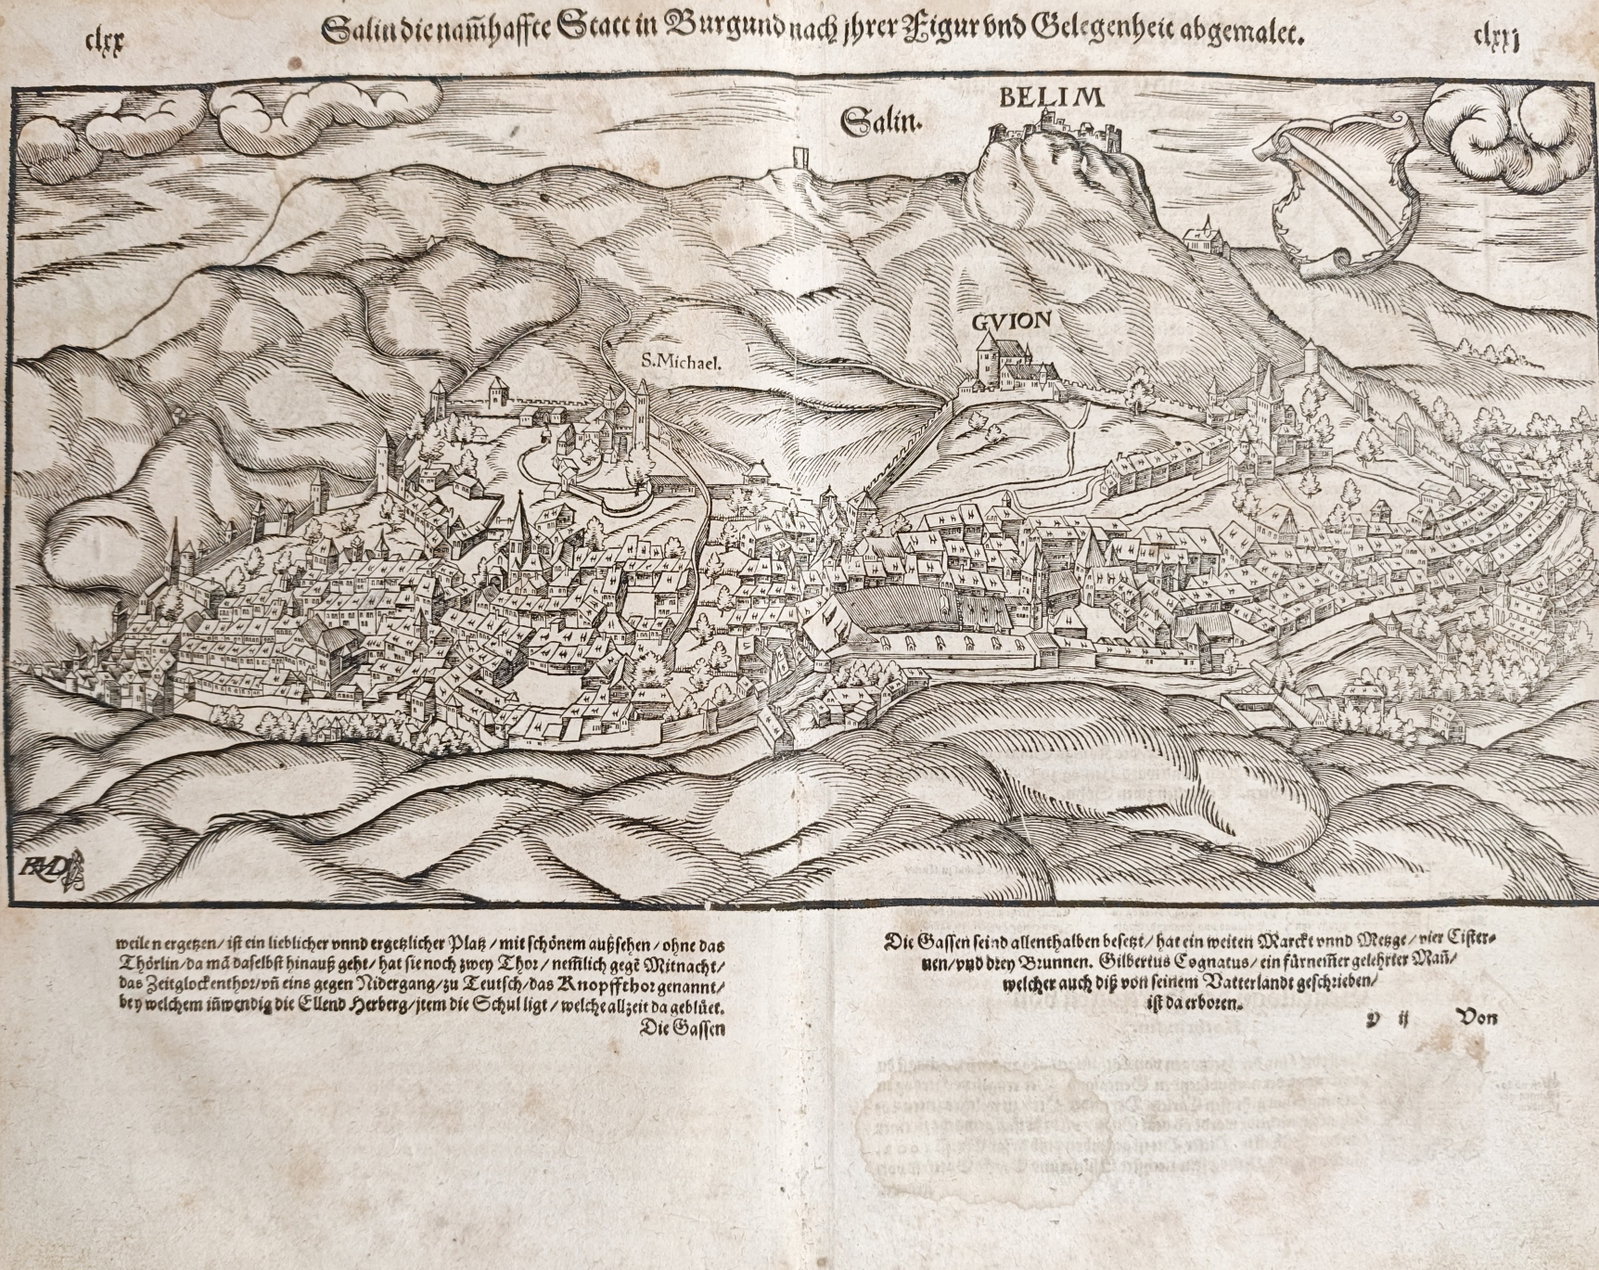 clxx
Salin die nam̃haffte Statt in Burgund nach jhrer Figur vnd Gelegenheit abgemalet.
clxxj
BELIM
Salin.
GVION
S. Michael.
RMD
weilen ergetzen / ist ein lieblicher vnnd ergetzlicher Platz / mit schönem außsehen / ohne das
Thörlin / da mā daselbst hinauß geht / hat sie noch zwey Thor / nem̃lich gegē Mitnacht /
das Zeitglockenthor / vñ eins gegen Nidergang / zu Teutsch / das Knopffthor genannt /
bey welchem iñwendig die Ellend Herberg / jtem die Schul ligt / welche allzeit da geblüet.
Die Gassen
Die Gassen seind allenthalben besetzt / hat ein weiten Marckt vnnd Metzge / vier Cister-
nen / vnd drey Brunnen. Gilbertus Cognatus / ein fürnem̃er gelehrter Mañ /
welcher auch diß von seinem Vatterlandt geschrieben /
ist da erboren.
v ij Von